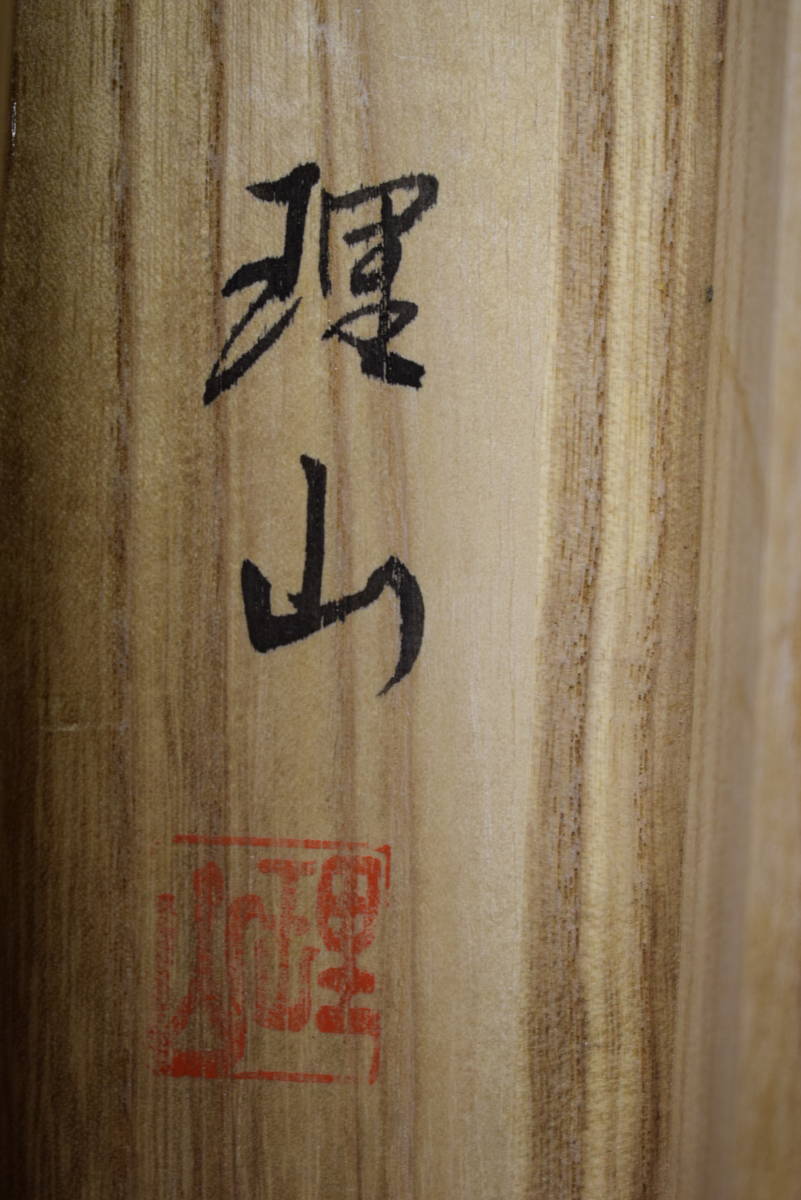 理山
理山